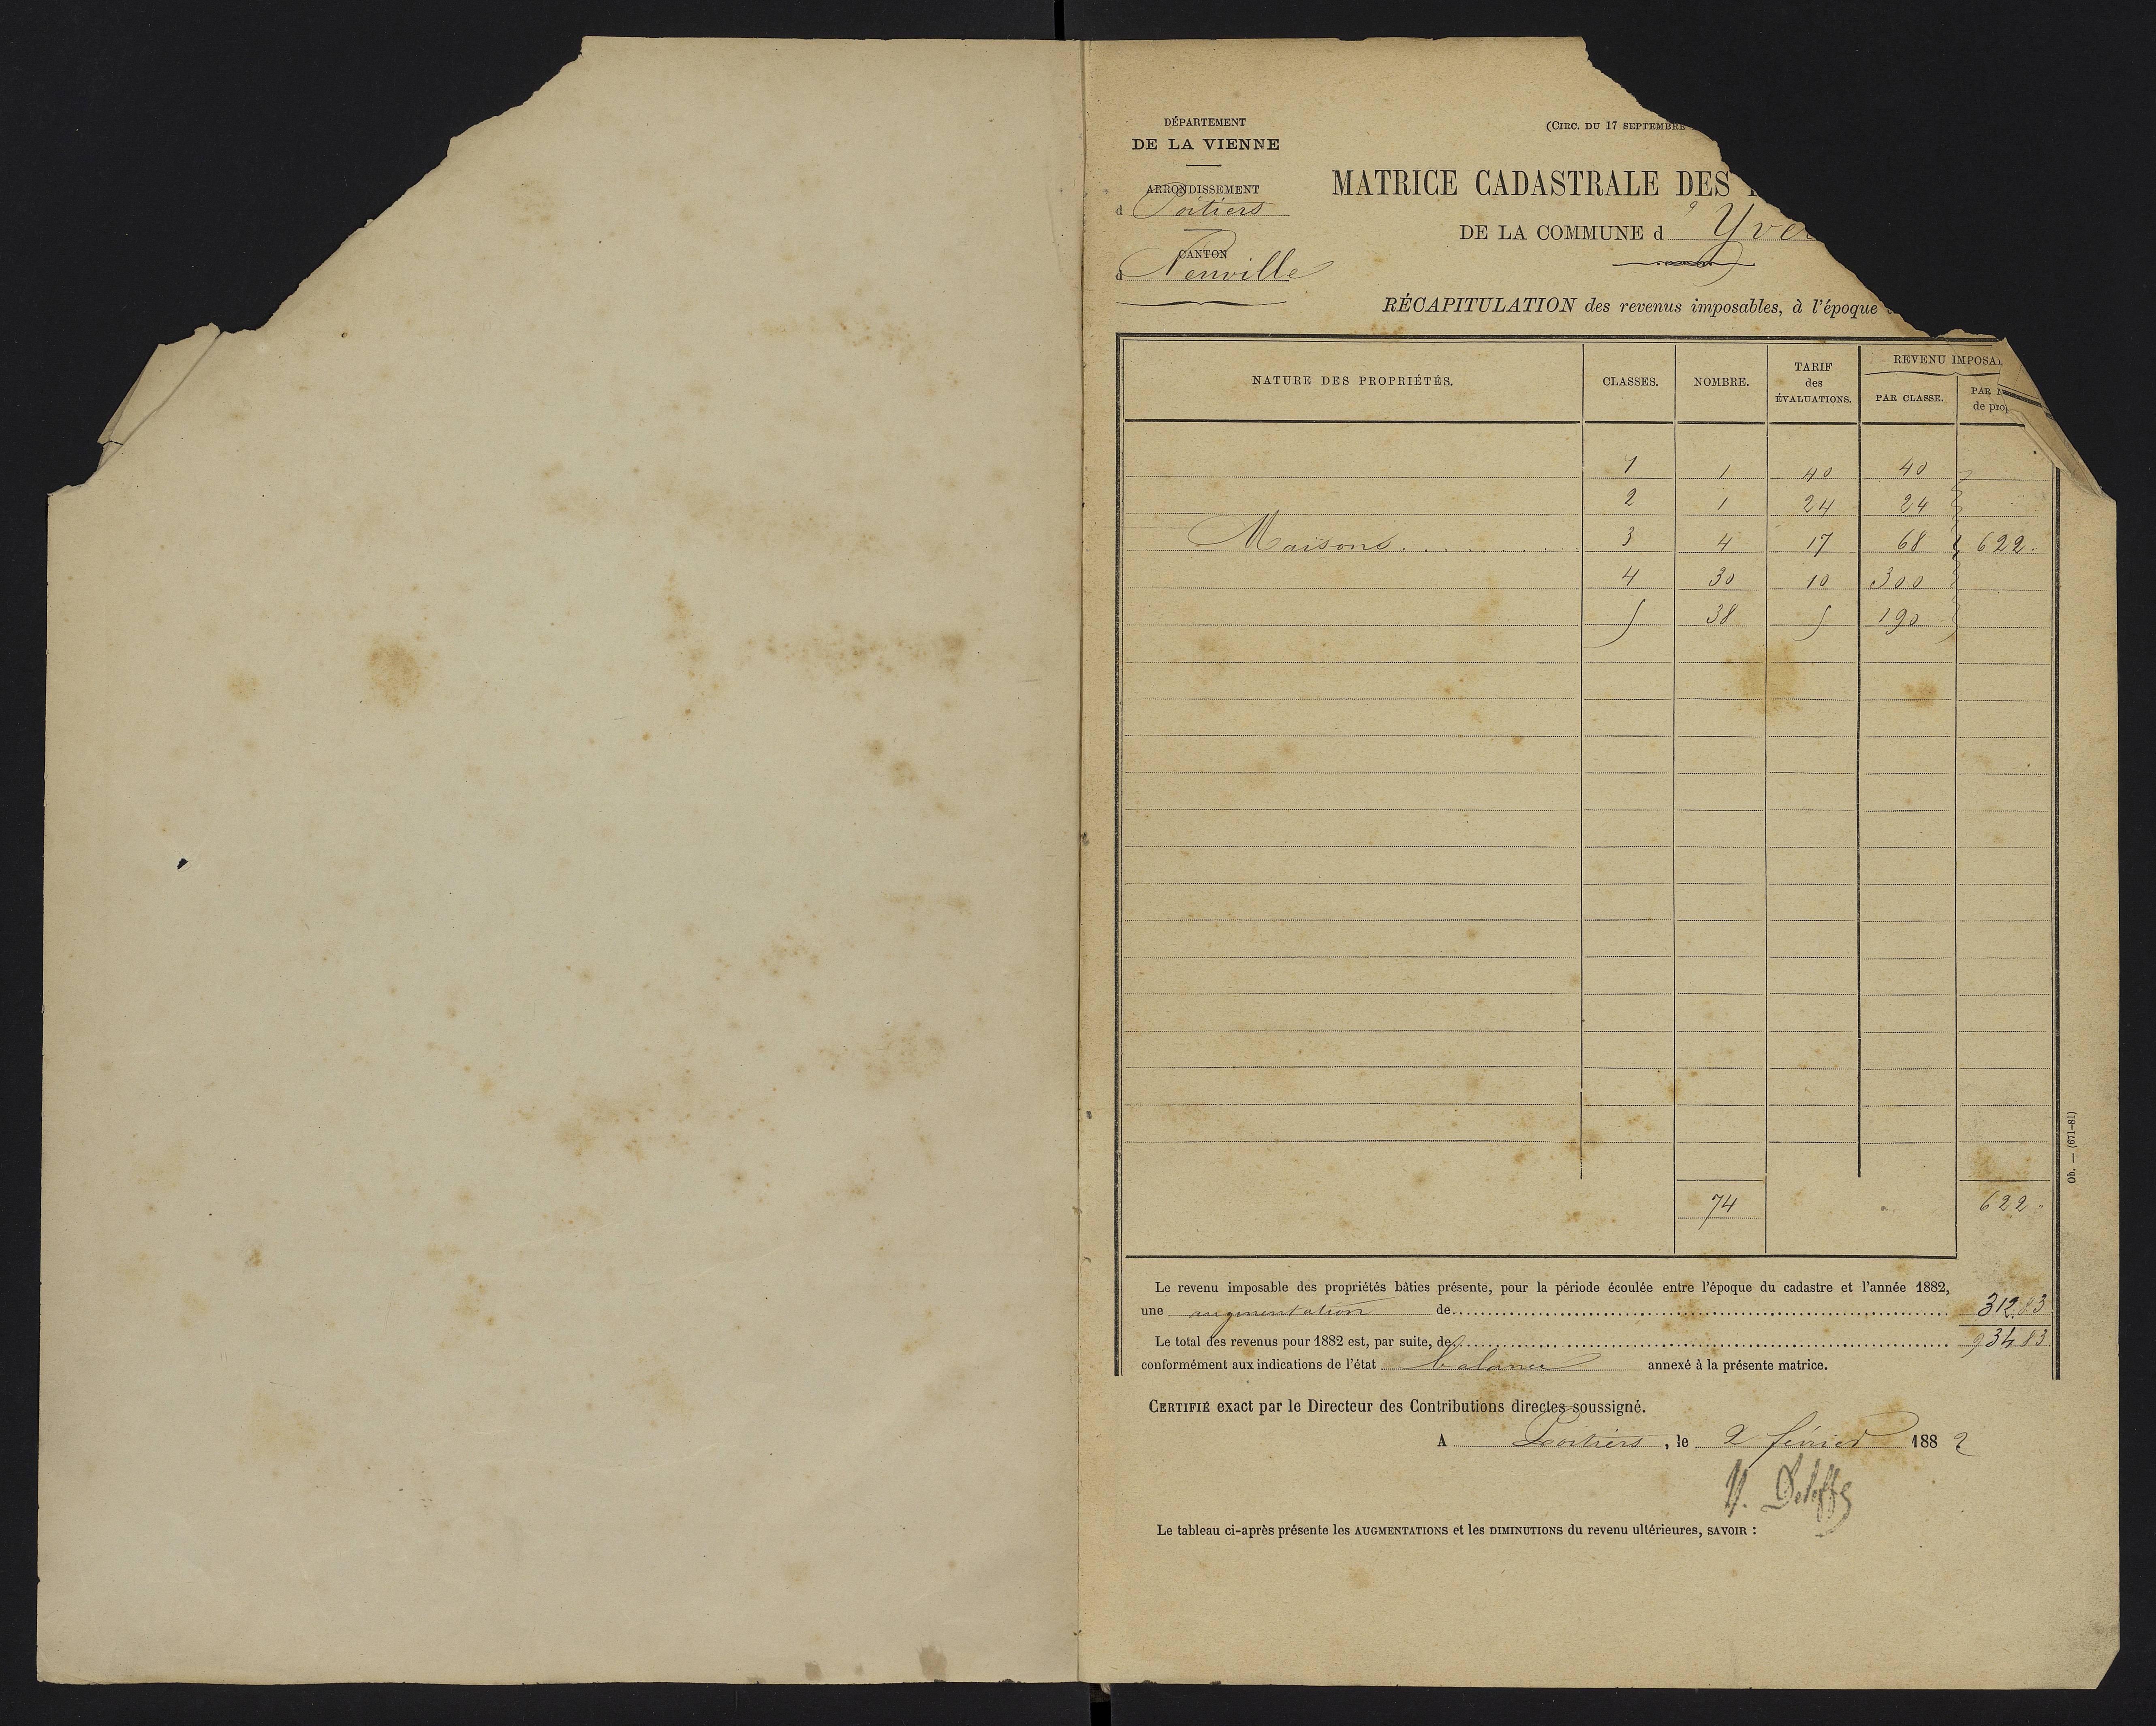 DÉPARTEMENT
DE LA VIENNE
ARRONDISSEMENT
d Poitiers
CANTON
d Neuville
(CIRC. DU 17 SEPTEMBRE
MATRICE CADASTRALE DES
DE LA COMMUNE d' Yve
RÉCAPITULATION des revenus imposables, à l'époque
NATURE DES PROPRIÉTÉS. CLASSES. NOMBRE. TARIF des ÉVALUATIONS. REVENU IMPOSA
PAR CLASSE. PAR N
de prop
1 1 40 40
2 1 24 24
Maisons. 3 4 17 68 622.
4 30 10 300
5 38 5 190
74 622.
Le revenu imposable des propriétés bâties présente, pour la période écoulée entre l'époque du cadastre et l'année 1882,
une augmentation de 312.83
Le total des revenus pour 1882 est, par suite, de 934.83
conformément aux indications de l'état balance annexé à la présente matrice.
CERTIFIÉ exact par le Directeur des Contributions directes soussigné.
A Poitiers, le 2 février 1882
Le tableau ci-après présente les AUGMENTATIONS et les DIMINUTIONS du revenu ultérieures, SAVOIR :
Ob. — (671-81)